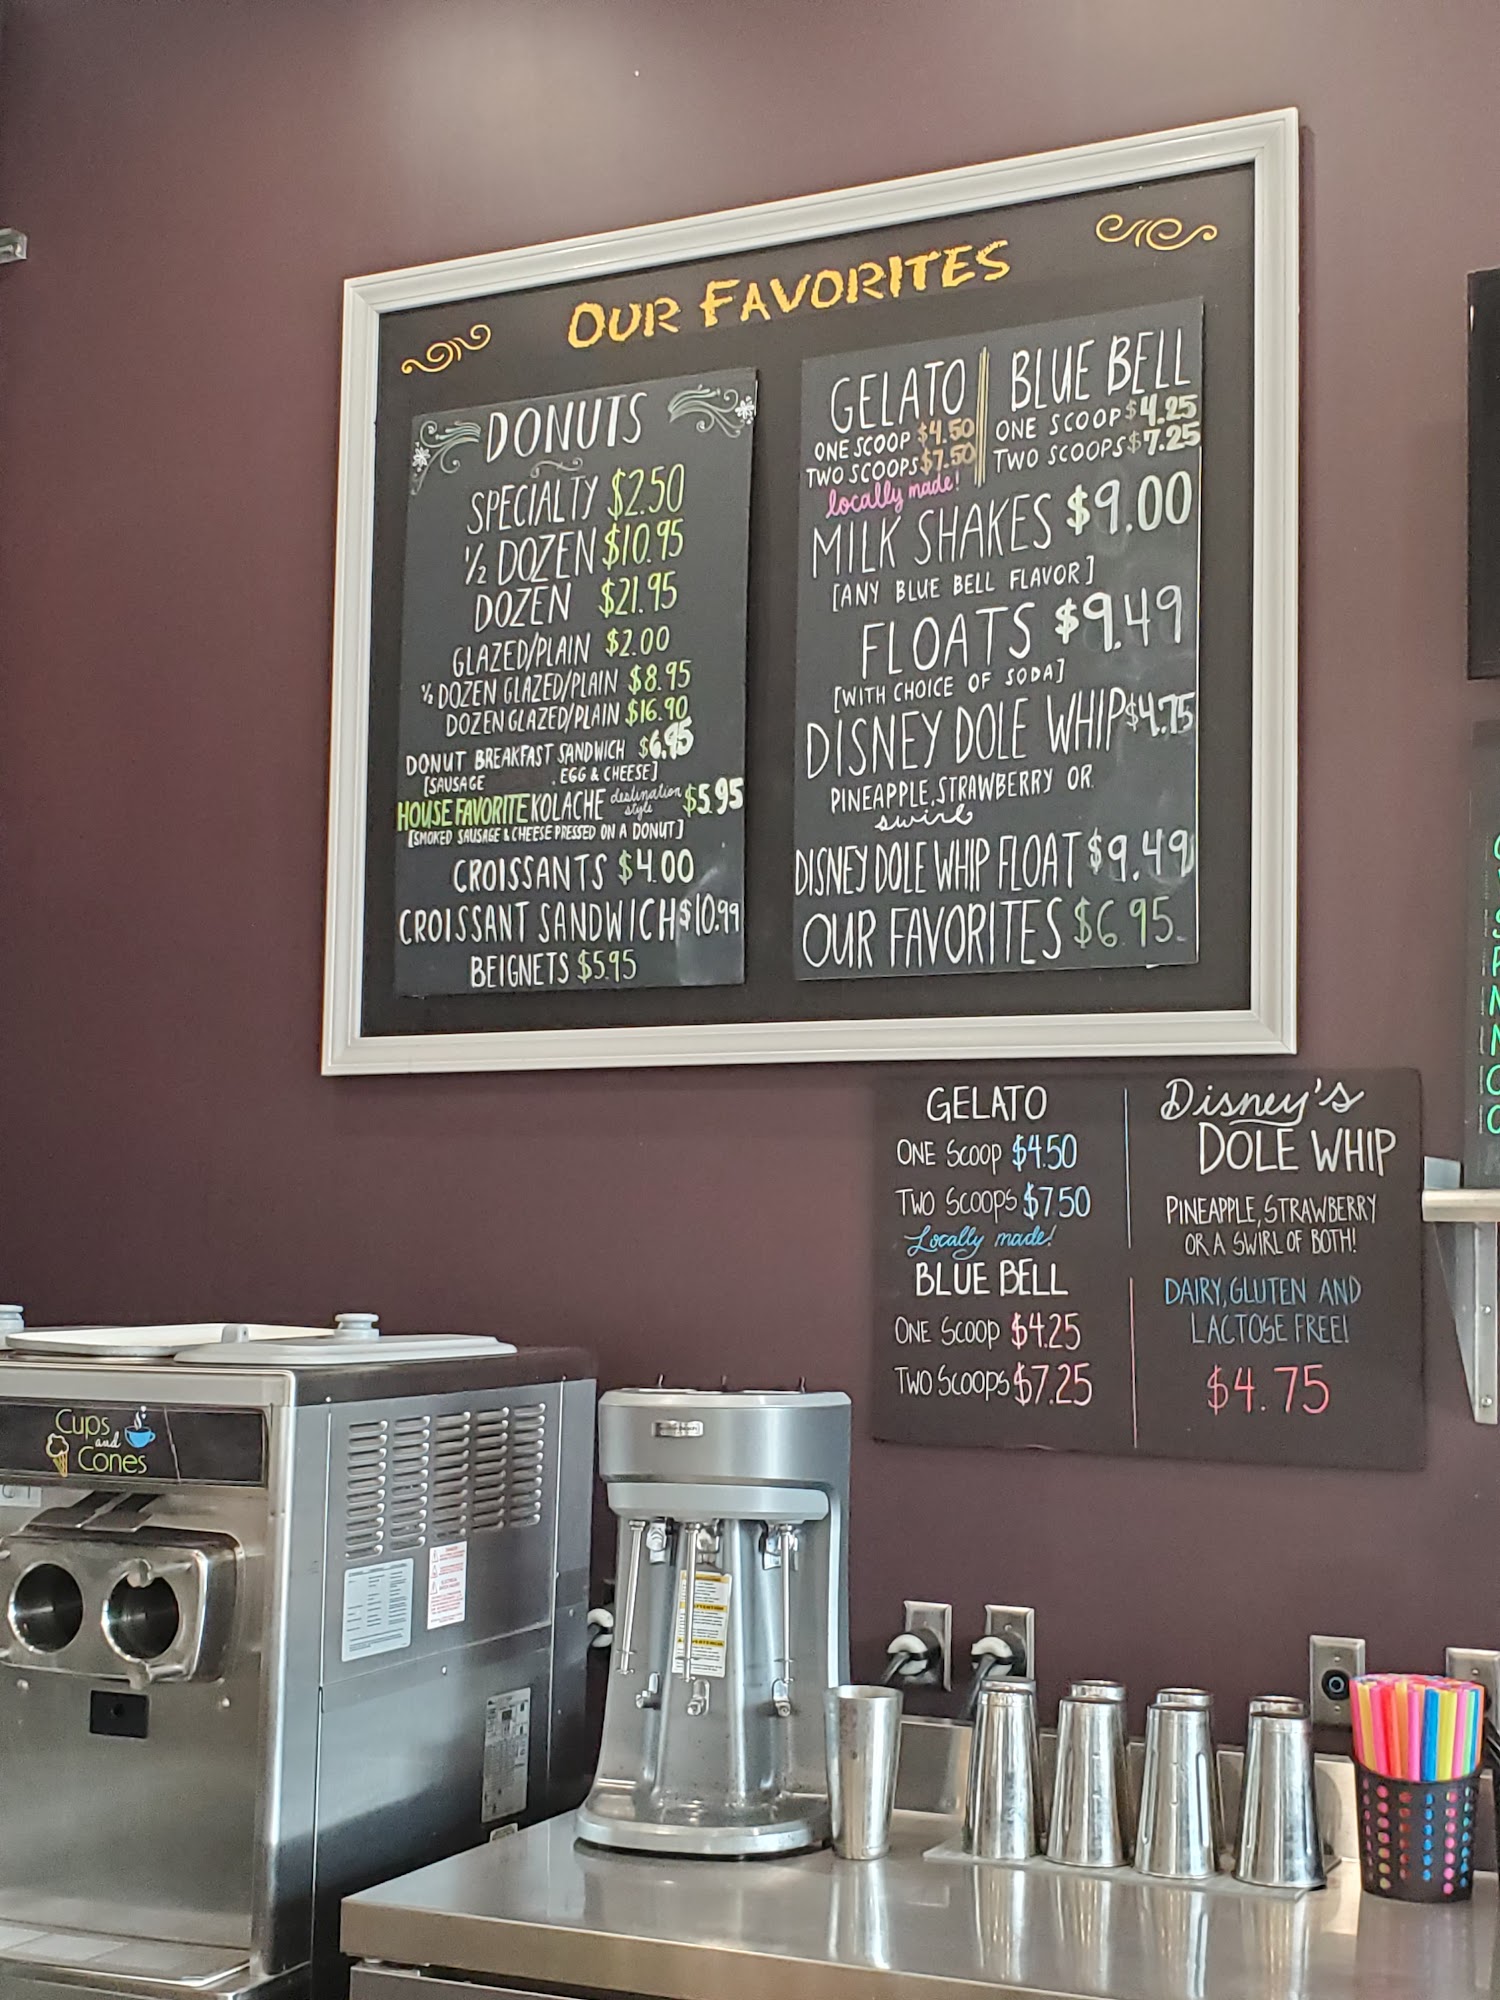 OUR FAVORITES
DONUTS
SPECIALTY $2.50
1/2 DOZEN $10.95
DOZEN $21.95
GLAZED/PLAIN $2.00
1/2 DOZEN GLAZED/PLAIN $8.95
DOZEN GLAZED/PLAIN $16.90
DONUT BREAKFAST SANDWICH $6.95
[SAUSAGE . EGG & CHEESE]
HOUSE FAVORITE KOLACHE destination style $5.95
[SMOKED SAUSAGE & CHEESE PRESSED ON A DONUT]
CROISSANTS $4.00
CROISSANT SANDWICH $10.99
BEIGNETS $5.95
GELATO
ONE SCOOP $4.50
TWO SCOOPS $7.50
locally made!
BLUE BELL
ONE SCOOP $4.25
TWO SCOOPS $7.25
MILK SHAKES $9.00
[ANY BLUE BELL FLAVOR]
FLOATS $9.49
[WITH CHOICE OF SODA]
DISNEY DOLE WHIP $4.75
PINEAPPLE, STRAWBERRY OR
swirl
DISNEY DOLE WHIP FLOAT $9.49
OUR FAVORITES $6.95
GELATO
ONE SCOOP $4.50
TWO SCOOPS $7.50
Locally made!
BLUE BELL
ONE SCOOP $4.25
TWO SCOOPS $7.25
Disney's
DOLE WHIP
PINEAPPLE, STRAWBERRY
OR A SWIRL OF BOTH!
DAIRY, GLUTEN AND
LACTOSE FREE!
$4.75
Cups
and
Cones